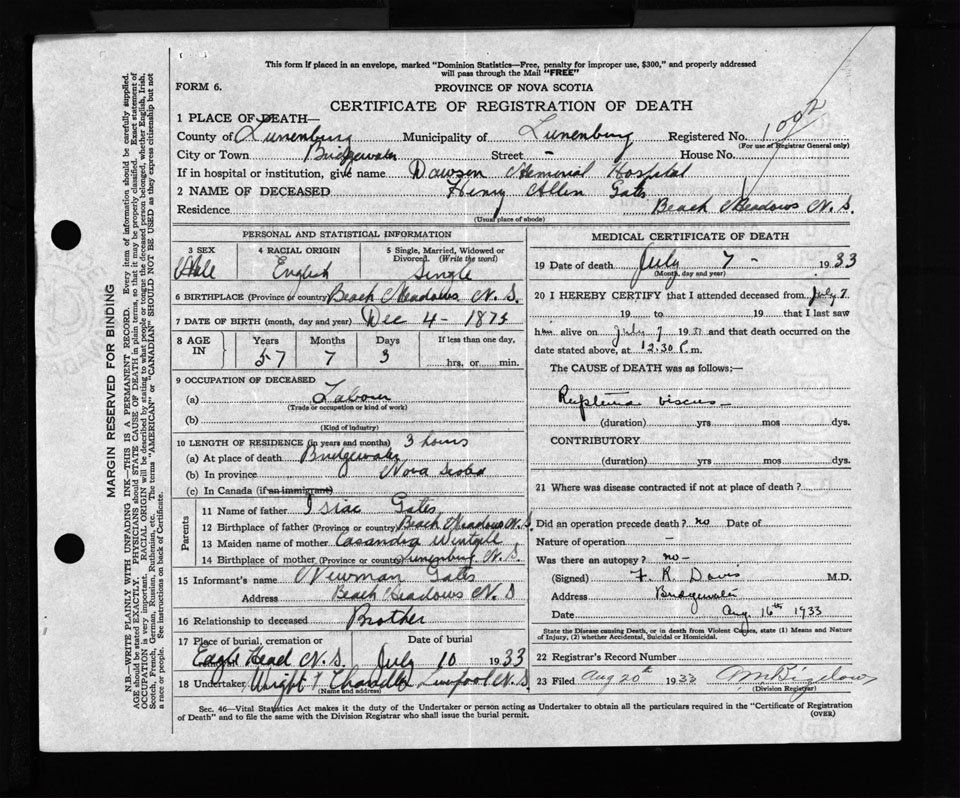 This form if placed in an envelope, marked "Dominion Statistics—Free, penalty for improper use, $300," and properly addressed
will pass through the Mail "FREE"
FORM 6.
PROVINCE OF NOVA SCOTIA
CERTIFICATE OF REGISTRATION OF DEATH
1092
1 PLACE OF DEATH—
County of Lunenburg Municipality of Lunenburg Registered No.
(For use of Registrar General only)
City or Town Bridgewater Street - House No.
If in hospital or institution, give name Dawson Memorial Hospital
2 NAME OF DECEASED Henry Allen Gates
Residence Beach Meadows N. S.
(Usual place of abode)
PERSONAL AND STATISTICAL INFORMATION
3 SEX 4 RACIAL ORIGIN 5 Single, Married, Widowed or
Divorced. (Write the word)
Male English Single
6 BIRTHPLACE (Province or country) Beach Meadows N. S.
7 DATE OF BIRTH (month, day and year) Dec 4 - 1875
8 AGE IN Years Months Days If less than one day,
57 7 3 hrs. or min.
9 OCCUPATION OF DECEASED
(a) Labour
(Trade or occupation or kind of work)
(b)
(Kind of industry)
10 LENGTH OF RESIDENCE (in years and months) 3 hours
(a) At place of death Bridgewater
(b) In province Nova Scotia
(c) In Canada (if an immigrant)
Parents
11 Name of father Isiac Gates
12 Birthplace of father (Province or country) Beach Meadows N. S.
13 Maiden name of mother Casandra
14 Birthplace of mother (Province or country) Lunenburg N. S.
15 Informant's name Newman Gates
Address Beach Meadows N. S
16 Relationship to deceased Brother
17 Place of burial, cremation or Date of burial
Eagle Head N. S. July 10 1933
18 Undertaker Wright & Chandler Liverpool N. S
(Name and address)
MEDICAL CERTIFICATE OF DEATH
19 Date of death July 7 - 1933
(Month, day and year)
20 I HEREBY CERTIFY that I attended deceased from July 7
19 to 19 that I last saw
him alive on July 7 19 and that death occurred on the
date stated above, at 12.30 P.m.
The CAUSE of DEATH was as follows:—
viscus -
(duration) yrs mos dys.
CONTRIBUTORY
(duration) yrs. mos. dys.
21 Where was disease contracted if not at place of death?
Did an operation precede death? no Date of
Nature of operation -
Was there an autopsy? no -
(Signed) F. R. Davis M.D.
Address Bridgewater
Date Aug 16th 1933
State the Disease causing Death, or in death from Violent Causes, state (1) Means and Nature
of Injury, (2) whether Accidental, Suicidal or Homicidal.
22 Registrar's Record Number
23 Filed Aug 20th 1933
(Division Registrar)
Sec. 46—Vital Statistics Act makes it the duty of the Undertaker or person acting as Undertaker to obtain all the particulars required in the "Certificate of Registration
of Death" and to file the same with the Division Registrar who shall issue the burial permit.
(OVER)
MARGIN RESERVED FOR BINDING
N.B.—WRITE PLAINLY WITH UNFADING INK—THIS IS A PERMANENT RECORD. Every item of information should be carefully supplied.
AGE should be stated EXACTLY. PHYSICIANS should STATE CAUSE OF DEATH in plain terms, so that it may be properly classified. Exact statement of
OCCUPATION is very important. RACIAL ORIGIN will be described by stating to what people or tongue the deceased person belonged, whether English, Irish,
Scotch, French, German, Russian, Ruthenian, etc. The terms "AMERICAN" or "CANADIAN" SHOULD NOT BE USED as they express citizenship but not
a race or people. See instructions on back of Certificate.